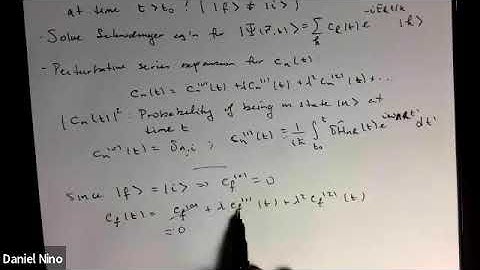 at time t > t₀ ? (|f> ≠ |i>)
- Solve Schrodinger eq'n for |Ψ(r⃗,t)> = Σ_k c_k(t) e^{-iE_k t/ħ} |k>
- Perturbative series expansion for c_n(t)
c_n(t) = c_n^{(0)}(t) + λ c_n^{(1)}(t) + λ² c_n^{(2)}(t) + ...
|c_n(t)|² : Probability of being in state |n> at
time t
c_n^{(0)}(t) = δ_{n,i} ; c_n^{(1)}(t) = 1/iħ ∫_{t₀}^{t} (t') e dt'
Since |f> = |i> ⇒ c_f^{(0)} = 0
c_f(t) = c_f^{(0)} + λ c_f^{(1)}(t) + λ² c_f^{(2)}(t)
= 0
Daniel Nino